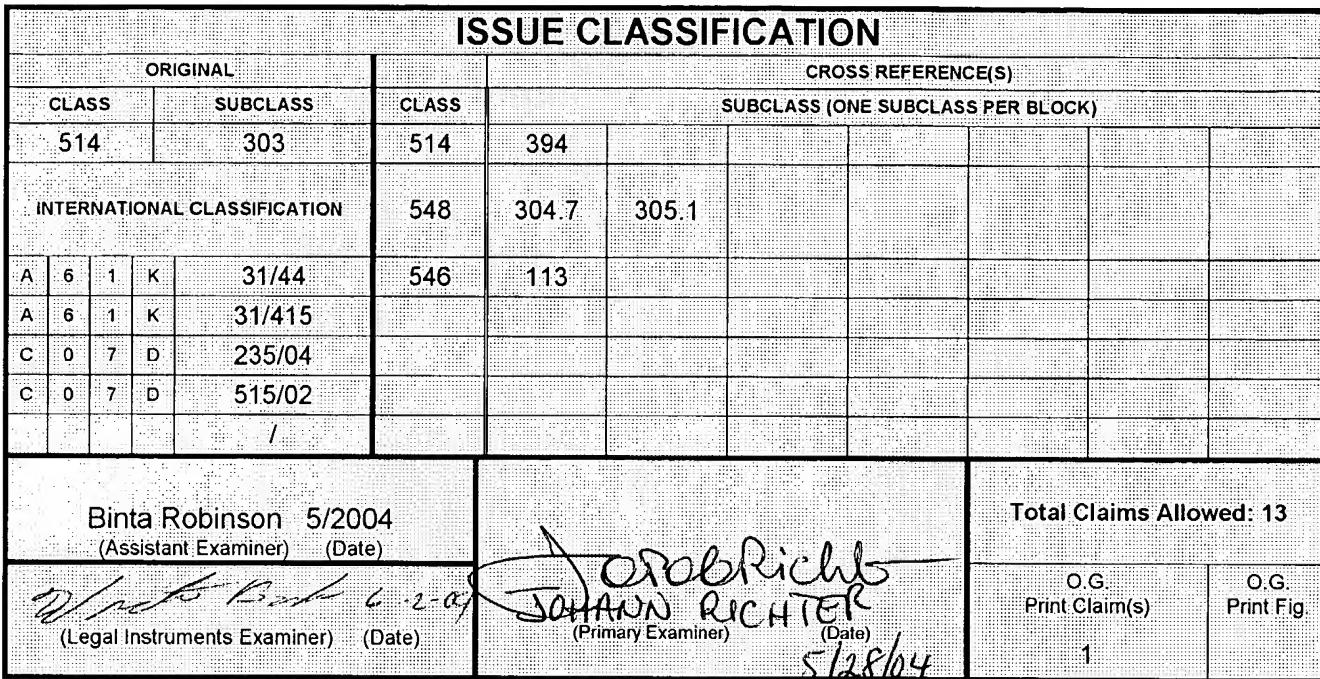 ISSUE CLASSIFICATION
ORIGINAL CROSS REFERENCE(S)
CLASS SUBCLASS CLASS SUBCLASS (ONE SUBCLASS PER BLOCK)
514 303 514 394
INTERNATIONAL CLASSIFICATION 548 304.7 305.1
A 6 1 K 31/44 546 113
A 6 1 K 31/415
C 0 7 D 235/04
C 0 7 D 515/02
/
Binta Robinson 5/2004
(Assistant Examiner) (Date)
6-2-04
(Legal Instruments Examiner) (Date)
JOHANN RICHTER
(Primary Examiner) (Date)
5/28/04
Total Claims Allowed: 13
O.G.
Print Claim(s)
1
O.G.
Print Fig.